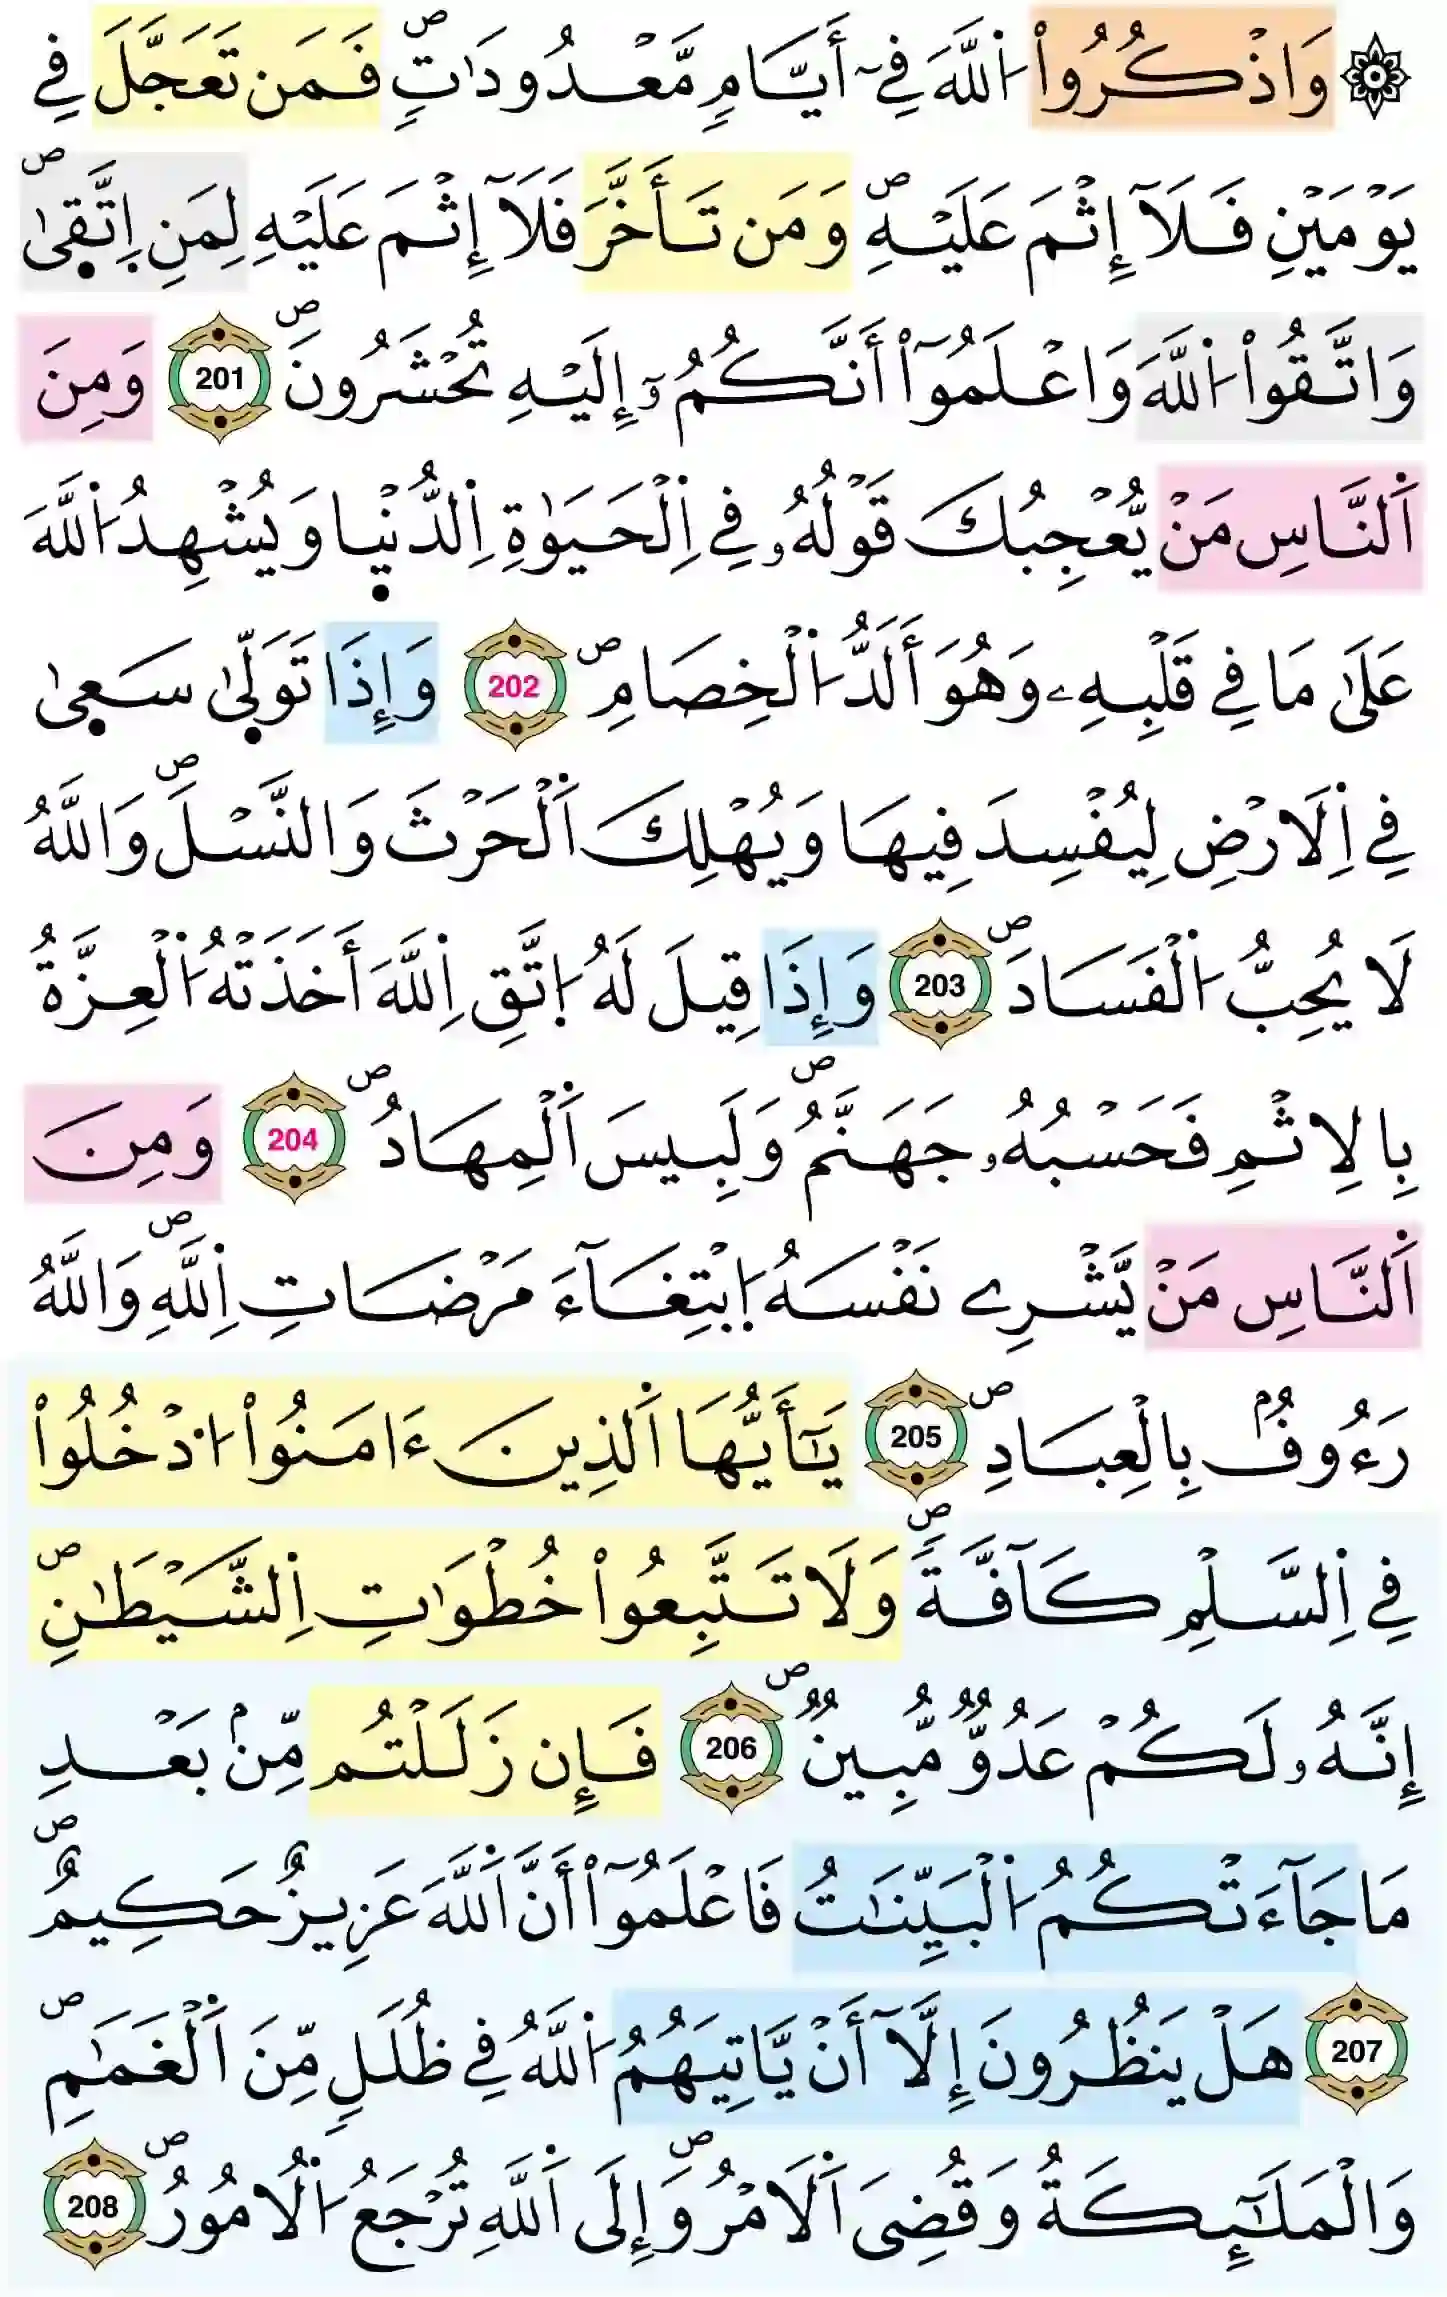 ۞ وَاذْكُرُواْ اُ۬للَّهَ فِےٓ أَيَّامٖ مَّعْدُودَٰتٖۖ فَمَن تَعَجَّلَ فِے
يَوْمَيْنِ فَلَآ إِثْمَ عَلَيْهِۖ وَمَن تَأَخَّرَ فَلَآ إِثْمَ عَلَيْهِ لِمَنِ اِ۪تَّق۪ىٰۖ
وَاتَّقُواْ اُ۬للَّهَ وَاعْلَمُوٓاْ أَنَّكُمُۥٓ إِلَيْهِ تُحْشَرُونَۖ 201 وَمِنَ
اَ۬لنَّاسِ مَنْ يُّعْجِبُكَ قَوْلُهُۥ فِے اِ۬لْحَيَوٰةِ اِ۬لدُّنْي۪ا وَيُشْهِدُ اُ۬للَّهَ
عَلَىٰ مَا فِے قَلْبِهِۦ وَهُوَ أَلَدُّ اُ۬لْخِصَامِۖ 202 وَإِذَا تَوَلّ۪ىٰ سَع۪ىٰ
فِے اِ۬لَارْضِ لِيُفْسِدَ فِيهَا وَيُهْلِكَ اَ۬لْحَرْثَ وَالنَّسْلَۖ وَاللَّهُ
لَا يُحِبُّ اُ۬لْفَسَادَۖ 203 وَإِذَا قِيلَ لَهُ اُ۪تَّقِ اِ۬للَّهَ أَخَذَتْهُ اُ۬لْعِزَّةُ
بِالِاثْمِ فَحَسْبُهُۥ جَهَنَّمُۖ وَلَبِيسَ اَ۬لْمِهَادُۖ 204 وَمِنَ
اَ۬لنَّاسِ مَنْ يَّشْرِے نَفْسَهُ اُ۪بْتِغَآءَ مَرْضَاتِ اِ۬للَّهِۖ وَاللَّهُ
رَءُوفُۢ بِالْعِبَادِۖ 205 يَٰٓأَيُّهَا اَ۬لذِينَ ءَامَنُواْ اُ۟دْخُلُواْ
فِے اِ۬لسَّلْمِ كَآفَّةٗۖ وَلَا تَتَّبِعُواْ خُطْوَٰتِ اِ۬لشَّيْطَٰنِۖ
إِنَّهُۥ لَكُمْ عَدُوّٞ مُّبِينٞۖ 206 فَإِن زَلَلْتُم مِّنۢ بَعْدِ
مَا جَآءَتْكُمُ اُ۬لْبَيِّنَٰتُ فَاعْلَمُوٓاْ أَنَّ اَ۬للَّهَ عَزِيزٌ حَكِيمٌۖ
207 هَلْ يَنظُرُونَ إِلَّآ أَنْ يَّاتِيَهُمُ اُ۬للَّهُ فِے ظُلَلٖ مِّنَ اَ۬لْغَمَٰمِۖ
وَالْمَلَٰٓئِكَةُ وَقُضِيَ اَ۬لَامْرُۖ وَإِلَى اَ۬للَّهِ تُرْجَعُ اُ۬لُامُورُۖ 208